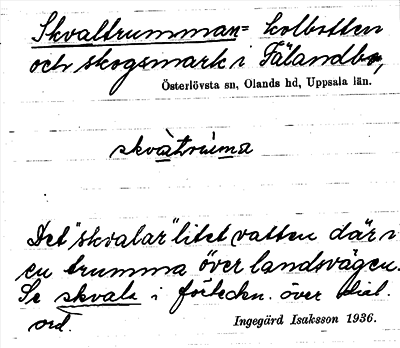 Skvaltrumman = kolbotten
och skogsmark i Fälandbo,
Österlövsta sn, Olands hd, Uppsala län.
skvàtrùma
Det "skvalar" litet vatten där i
en trumma över landsvägen.
Se skvala i förteckn. över dial.
ord.
Ingegärd Isaksson 1936.